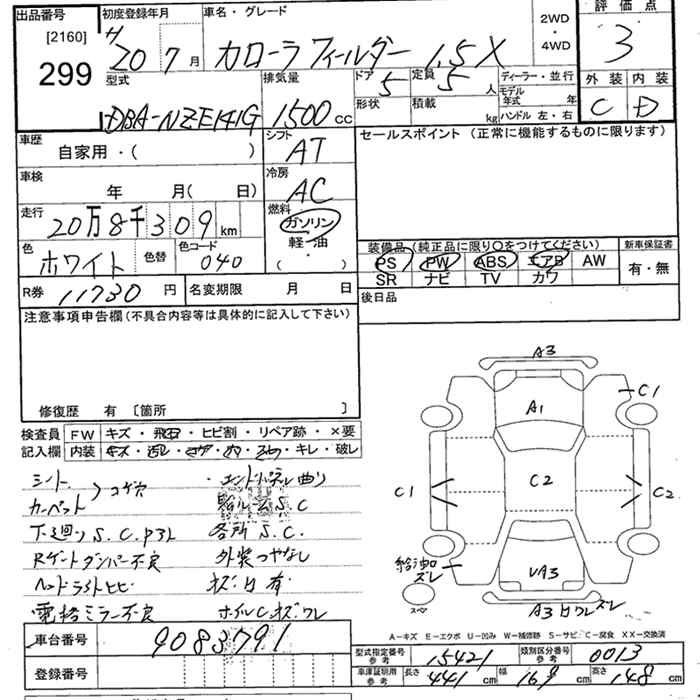 出品番号 初度登録年月 車名・グレード 2WD・4WD 評価点
[2160] H 20 7月 カローラフィールダー 1.5X 3
299
型式 排気量 ドア 5 定員 5人 ディーラー・並行 外装 内装
DBA-NZE141G 1500cc 形状 積載 kg モデル年式 年 ハンドル 左・右 C D
車歴 シフト セールスポイント (正常に機能するものに限ります)
自家用・( ) AT
車検 冷房
年 月( 日) AC
走行 燃料
20万8千309km ガソリン
色 色替 色コード 軽・油 装備品 (純正品に限り○をつけてください) 新車保証書
ホワイト 040 (・) PS PW ABS エアB AW 有・無
SR ナビ TV カワ
R券 11730円 名変期限 月 日 後日品
注意事項申告欄 (不具合内容等は具体的に記入して下さい)
修復歴 有 [箇所 ]
検査員 FW キズ・飛石・ヒビ割・リペア跡・×要
記入欄 内装 キズ・汚レ・コゲ・穴・スレ・キレ・破レ
シート
カーペット コゲ穴
エンドパネル曲り
ルームS.C
下廻りS.C.P3ト
各所S.C
Rゲートダンパー不良
外装つやなし
ヘッドライトヒビ
キズ凹有
電格ミラー不良
ホイルCキズワレ
A3
A1
C1
C2
C1
C2
給油口ズレ
UA3
スペア
A3凹ワレズレ
A-キズ E-エクボ U-凹み W-補修跡 S-サビ C-腐食 XX-交換済
車台番号 9083791
登録番号
型式指定番号 参考 15421 類別区分番号 参考 0013
車庫証明用 参考 長さ 441cm 幅 169cm 高さ 148cm